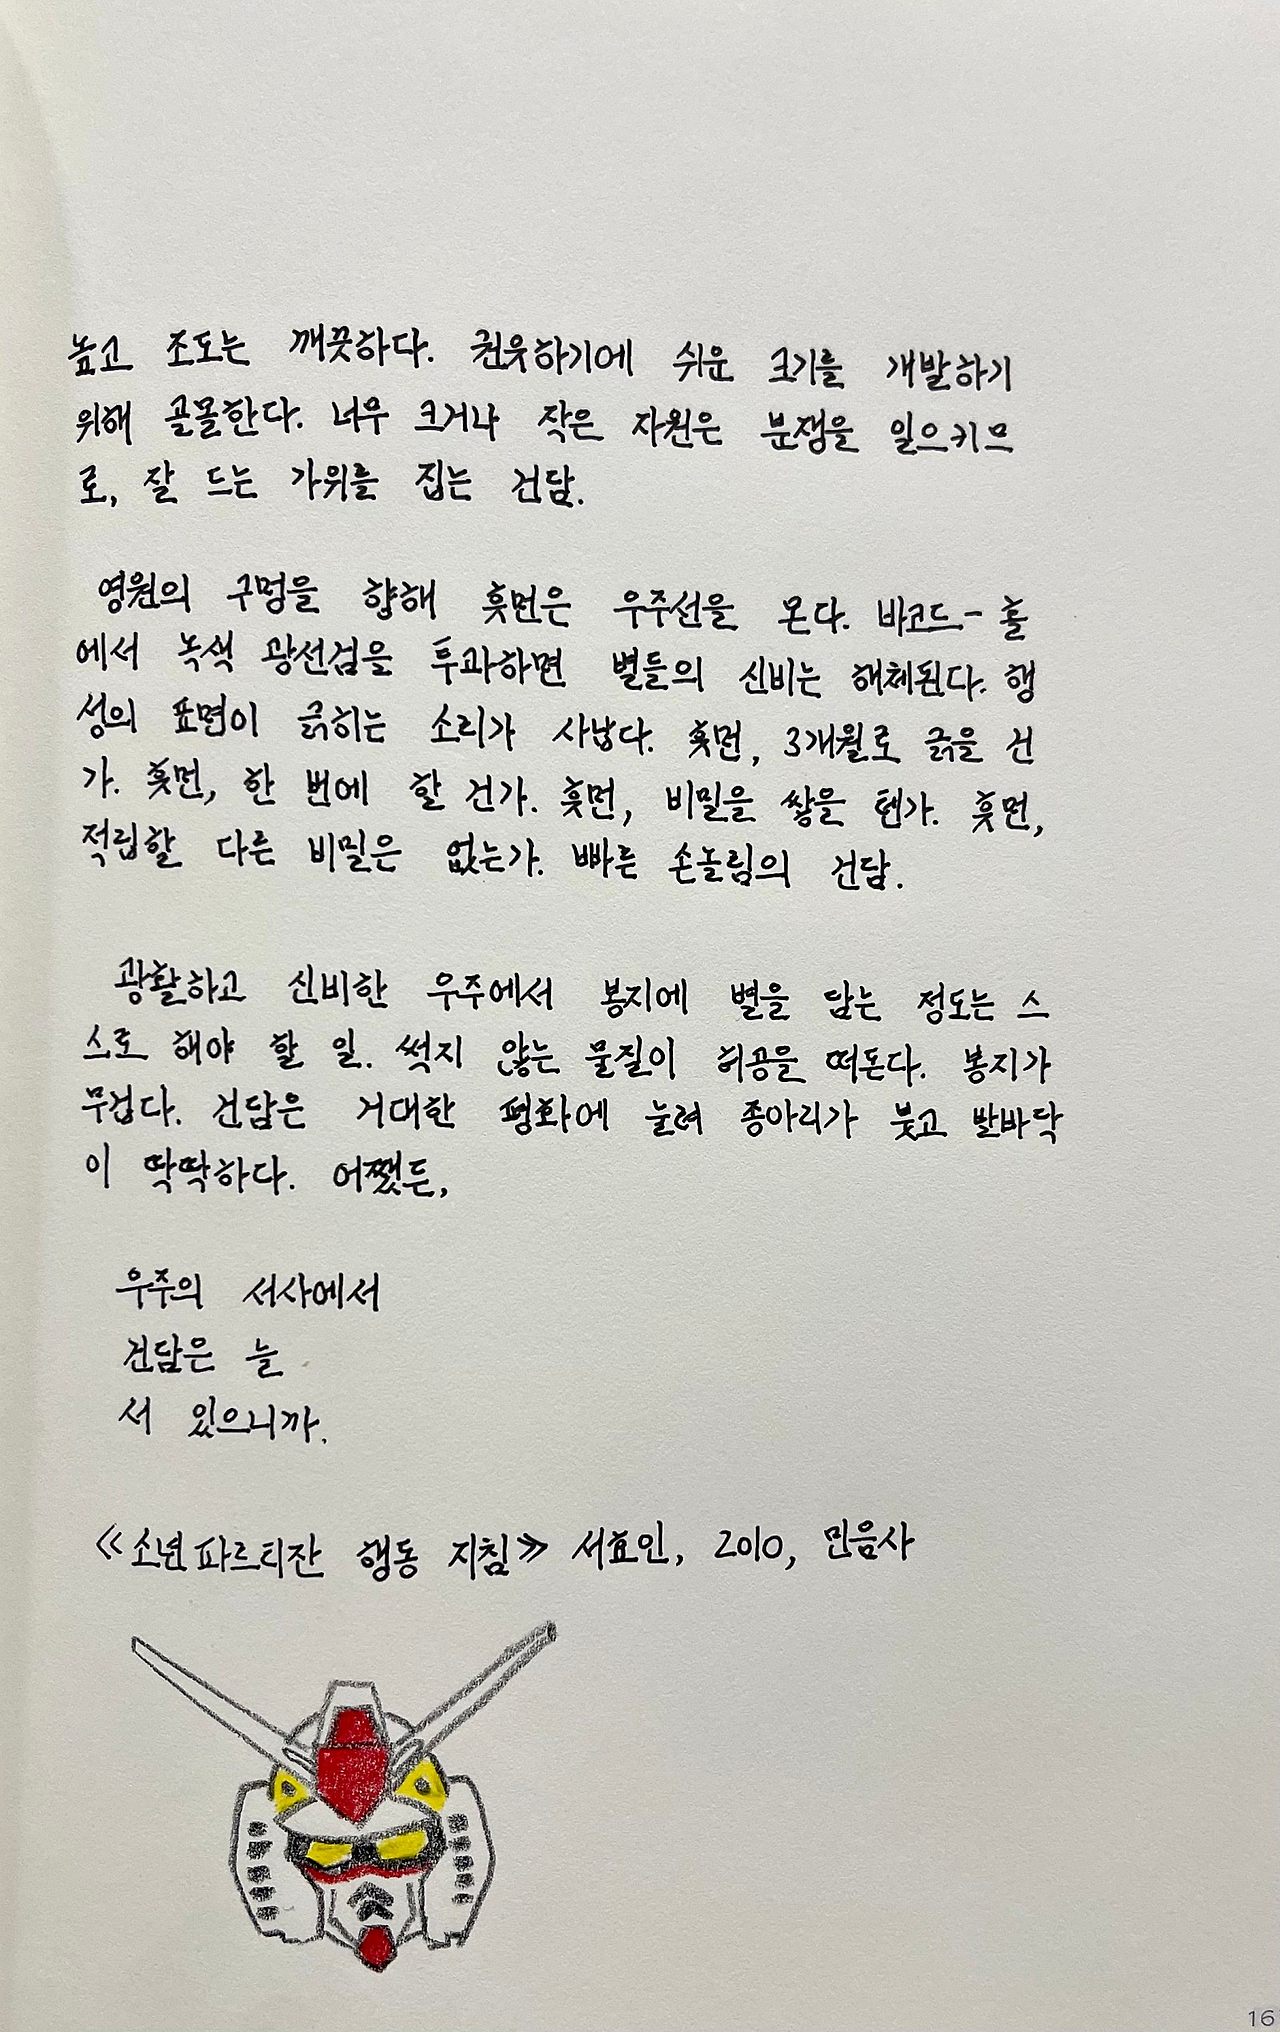 높고 조도는 깨끗하다. 권유하기에 쉬운 크기를 개발하기
위해 골몰한다. 너무 크거나 작은 자원은 분쟁을 일으키므
로, 잘 드는 가위를 집는 건담.
영원의 구멍을 향해 휴먼은 우주선을 몬다. 바코드-홀
에서 녹색 광선검을 투과하면 별들의 신비는 해체된다. 행
성의 표면이 긁히는 소리가 사납다. 휴먼, 3개월로 긁을 건
가. 휴먼, 한 번에 할 건가. 휴먼, 비밀을 쌓을 텐가. 휴먼,
적립할 다른 비밀은 없는가. 빠른 손놀림의 건담.
광활하고 신비한 우주에서 봉지에 별을 담는 정도는 스
스로 해야 할 일. 썩지 않는 물질이 허공을 떠돈다. 봉지가
무겁다. 건담은 거대한 평화에 눌려 종아리가 붓고 발바닥
이 딱딱하다. 어쨌든,
우주의 서사에서
건담은 늘
서 있으니까.
≪소년 파르티잔 행동 지침≫ 서효인, 2010, 민음사
16